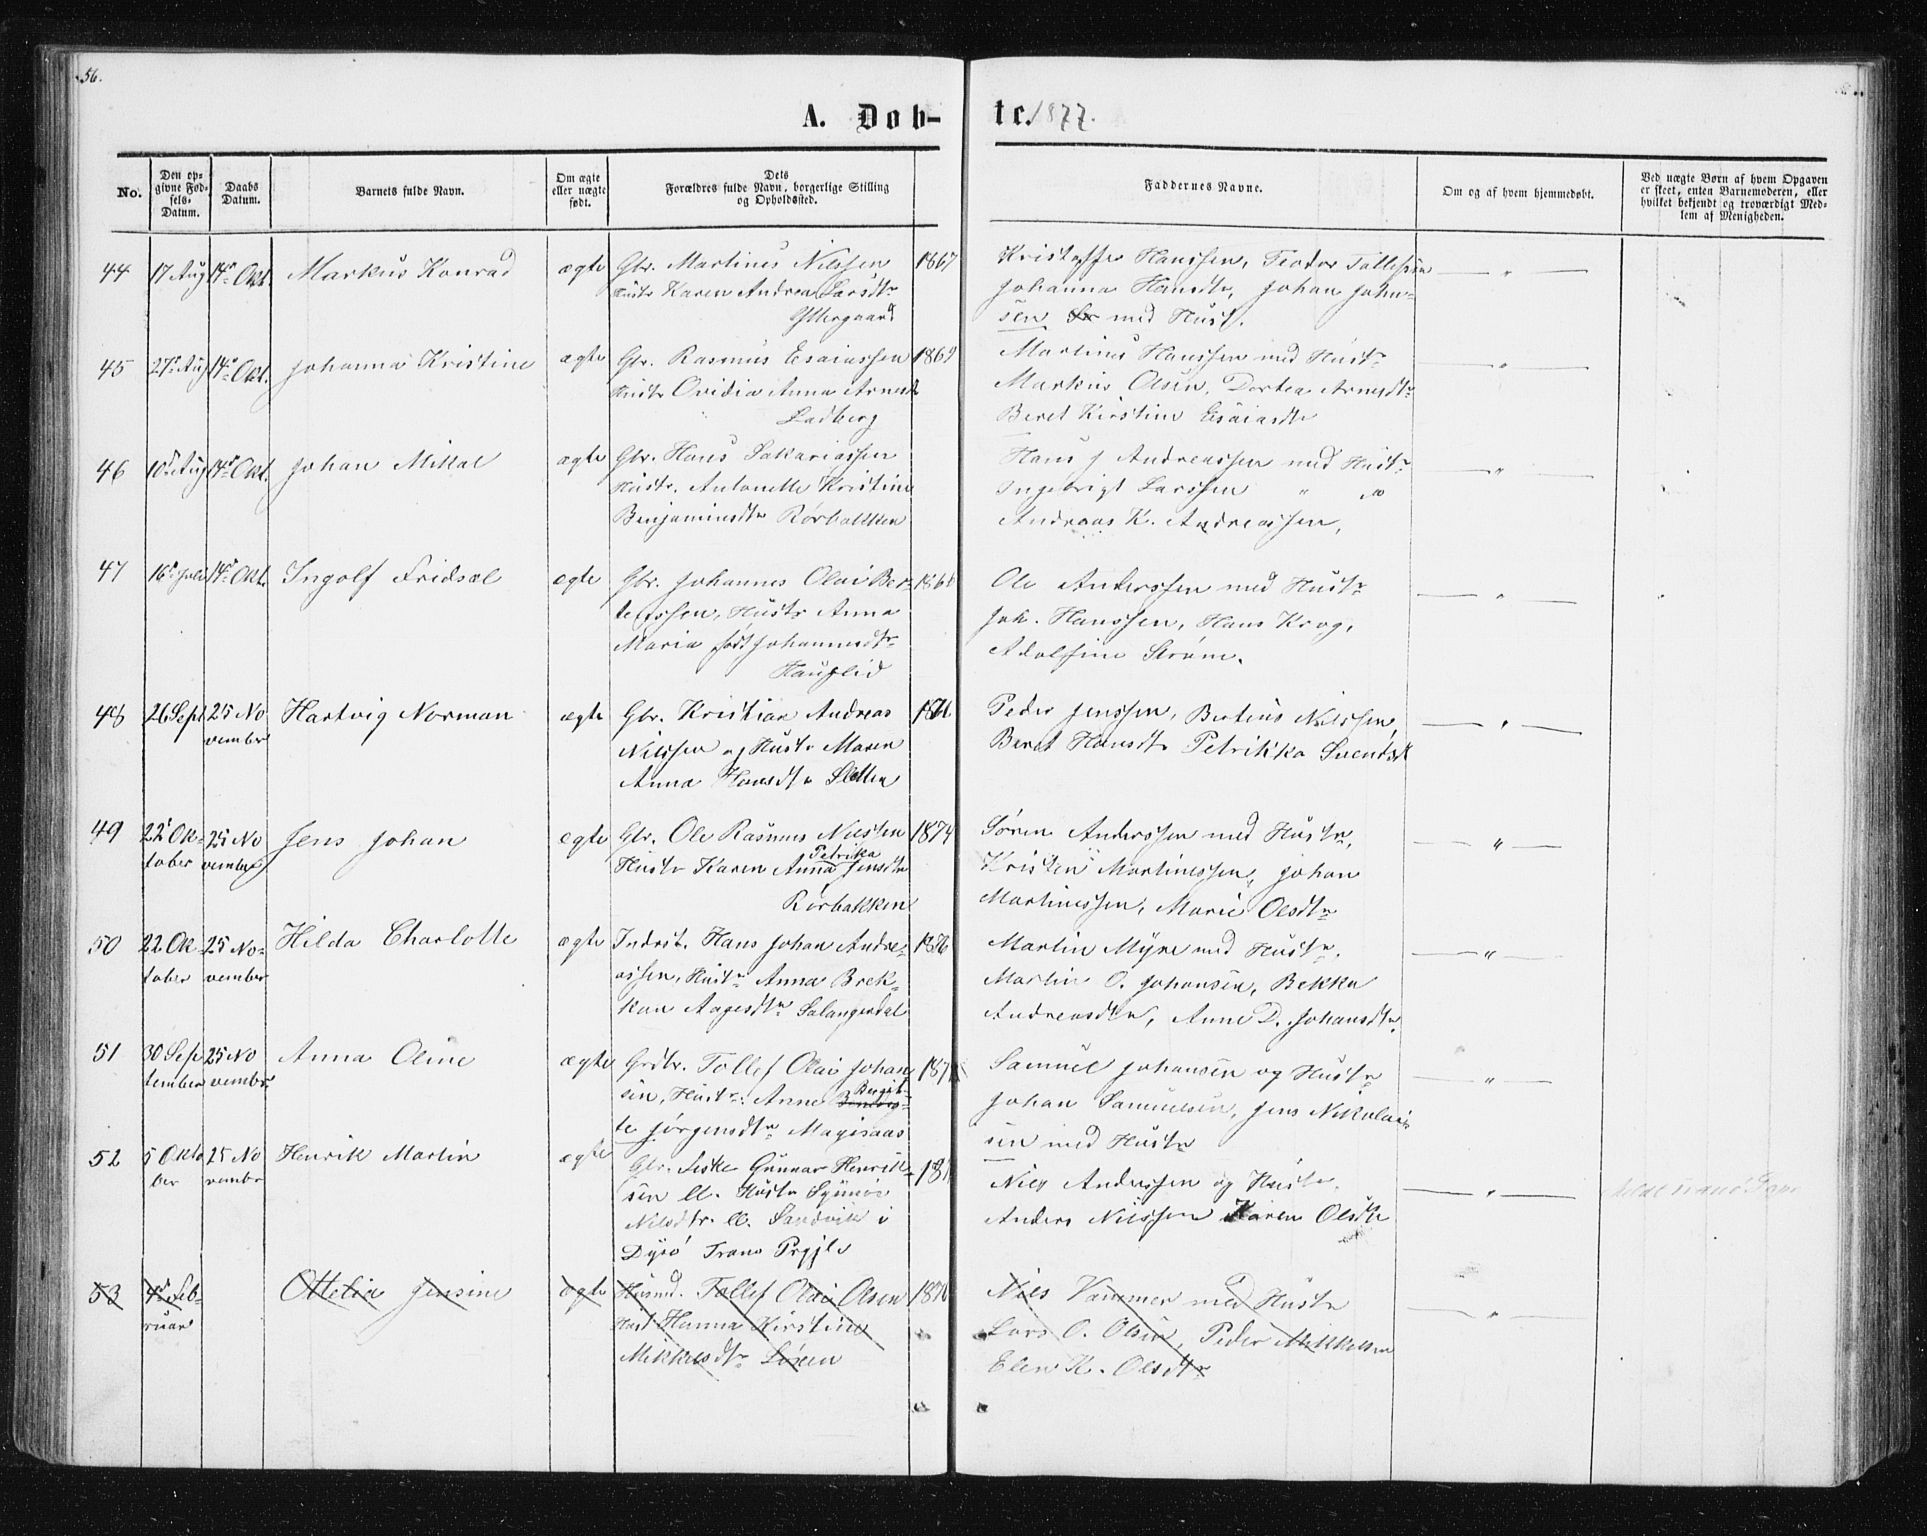 56.
A. Døb-
te. 1877.
No.
Den op-
givne Fød-
sels-
Datum.
Daabs
Datum.
Barnets fulde Navn.
Om ægte
eller uægte
født.
Dets
Forældres fulde Navn, borgerlige Stilling
og Opholdssted.
Faddernes Navne.
Om og af hvem hjemmedøbt.
Ved uægte Børn af hvem Opgaven
er skeet, enten Barnemoderen, eller
hvilket bekjendt og troværdigt Med-
lem af Menigheden.
44 17 Aug 14de Okt. Markus Konrad ægte Gbr. Martinus Nilssen 1867
Hustr Karen Andrea Larsdtr
Yttergaard
Kristoffer Hanssen, Teodor Tollefsen
Johanna Hansdtr, Johan John-
sen med Hust. — " —
45 27de Aug 14de Okt. Johanna Kristine ægte Gbr. Rasmus Esaiassen 1869
Hustr Ovidia Anna Arnesdtr
Ladberg
Martinus Hanssen med Hustr
Markus Olsen, Dortea Arnesdtr
Beret Kirstine Esaiasdtr — " —
46 10de Aug 14de Okt. Johan Mikal ægte Gbr. Hans Sakariassen
Hustr. Antonette Kristine
Benjaminsdtr Rørbakken
Hans J Andreassen med Hustr
Ingebrigt Larssen " "
Andreas K. Andreassen, — " —
47 16de Juli 14de Okt. Ingolf Fridsæl ægte Gbr. Johannes Olai Ber-
telssen, Hustr Anna
Maria født Johannesdtr
Hauglid
Ole Anderssen med Hustr
Joh. Hanssen, Hans Krog,
Adolfine Strøm. — " —
48 26 Sept 25 No
vember Hartvig Norman ægte Gbr. Kristian Andreas
Nilssen og Hustr Maren
Anna Hansdtr Sletten
Peder Jenssen, Berteus Nilssen,
Beret Hansdtr Petrikka Svendsdt — " —
49 22de Ok-
tober 25 No
vember Jens Johan ægte Gbr. Ole Rasmus Nilssen 1874
Hustr Karen Petrika Anna Jensdtr
Rørbakken
Søren Anderssen med Hustr,
Kristen Martinessen, Johan
Martinessen, Marie Olsdtr — " —
50 22 Ok-
tober 25 No-
vember Hilda Charlotte ægte Indrst. Hans Johan Andre-
assen, Hustr Anna Brek-
kan Aagesdtr Salangsdal
Martin Myre med Hustr.
Martin O. Johansen, Bekka
Andreasdtr, Anne D. Johansdtr. — " —
51 30 Sep
tember 25 No
vember Anna Oline ægte Grdbr. Tollef Olai Johan
sen, Hustr: Anne Bergit-
te Jørgensdtr Magisaas
Samuel Johansen og Hustr
Johan Samuelsen, Jens Nikolai-
sen med Hustr — " —
52 5 Okto
ber 25 No
vember Henrik Martin ægte Gbr. Fisker Gunnar Henrik-
sen ll. Hustr Synnøe
Nilsdtr. ll. Sandvik i
Dyrø Trano Prgjld
Nils Anderssen og Hustr.
Anders Nilssen Karen Olsdtr — " —
53 4de Feb-
ruar Ottelia Jensine ægte Husmd. Tollef Olai Olsen 1870
Hust Hanna Kirstine
Mikkelsdtr Løren
Nils Vammer med Hustr
Lars O. Olsen, Peder Mikkelsen
Elen K. Olsdtr — " —